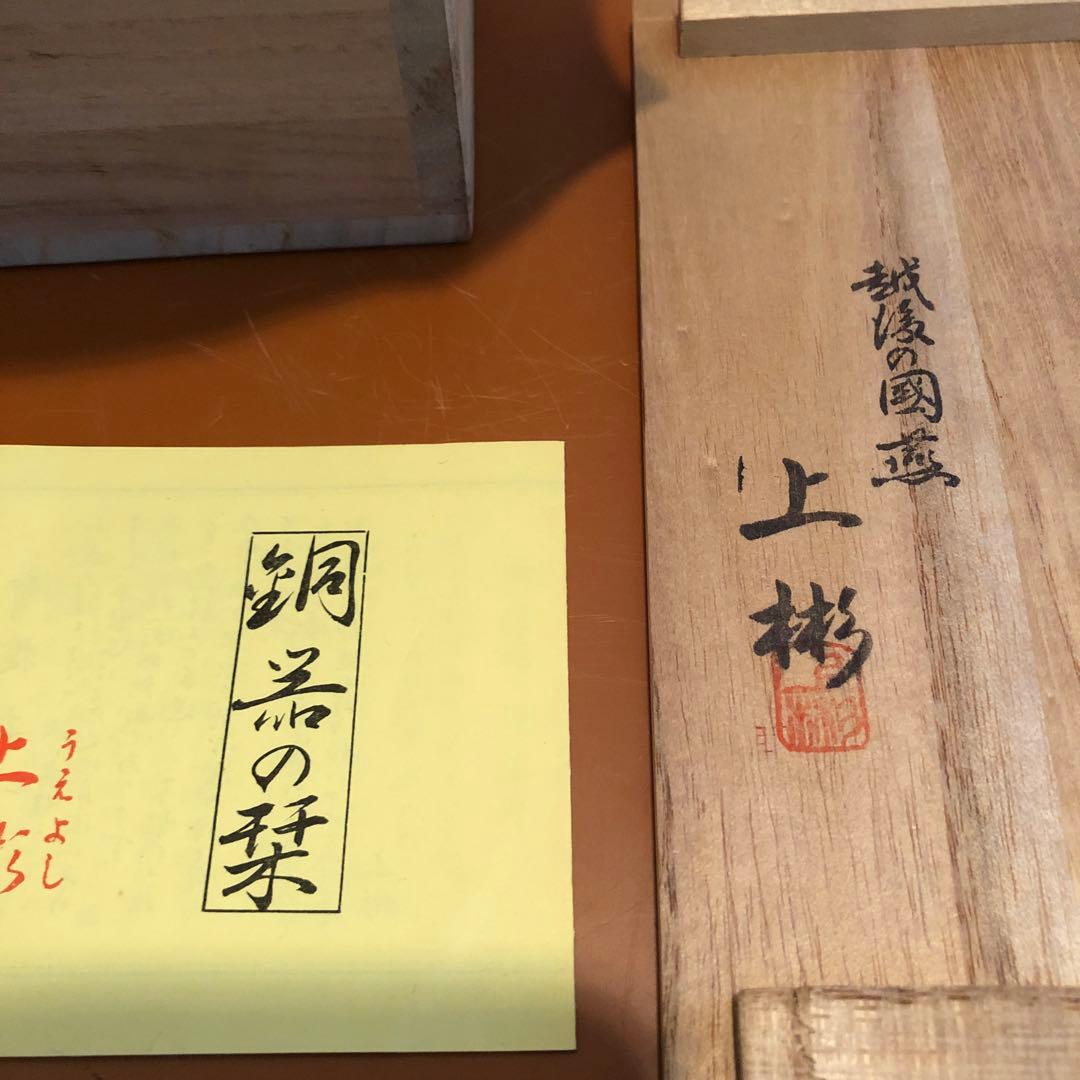 越後の國燕
上彬
銅器の栞
うえよし
上